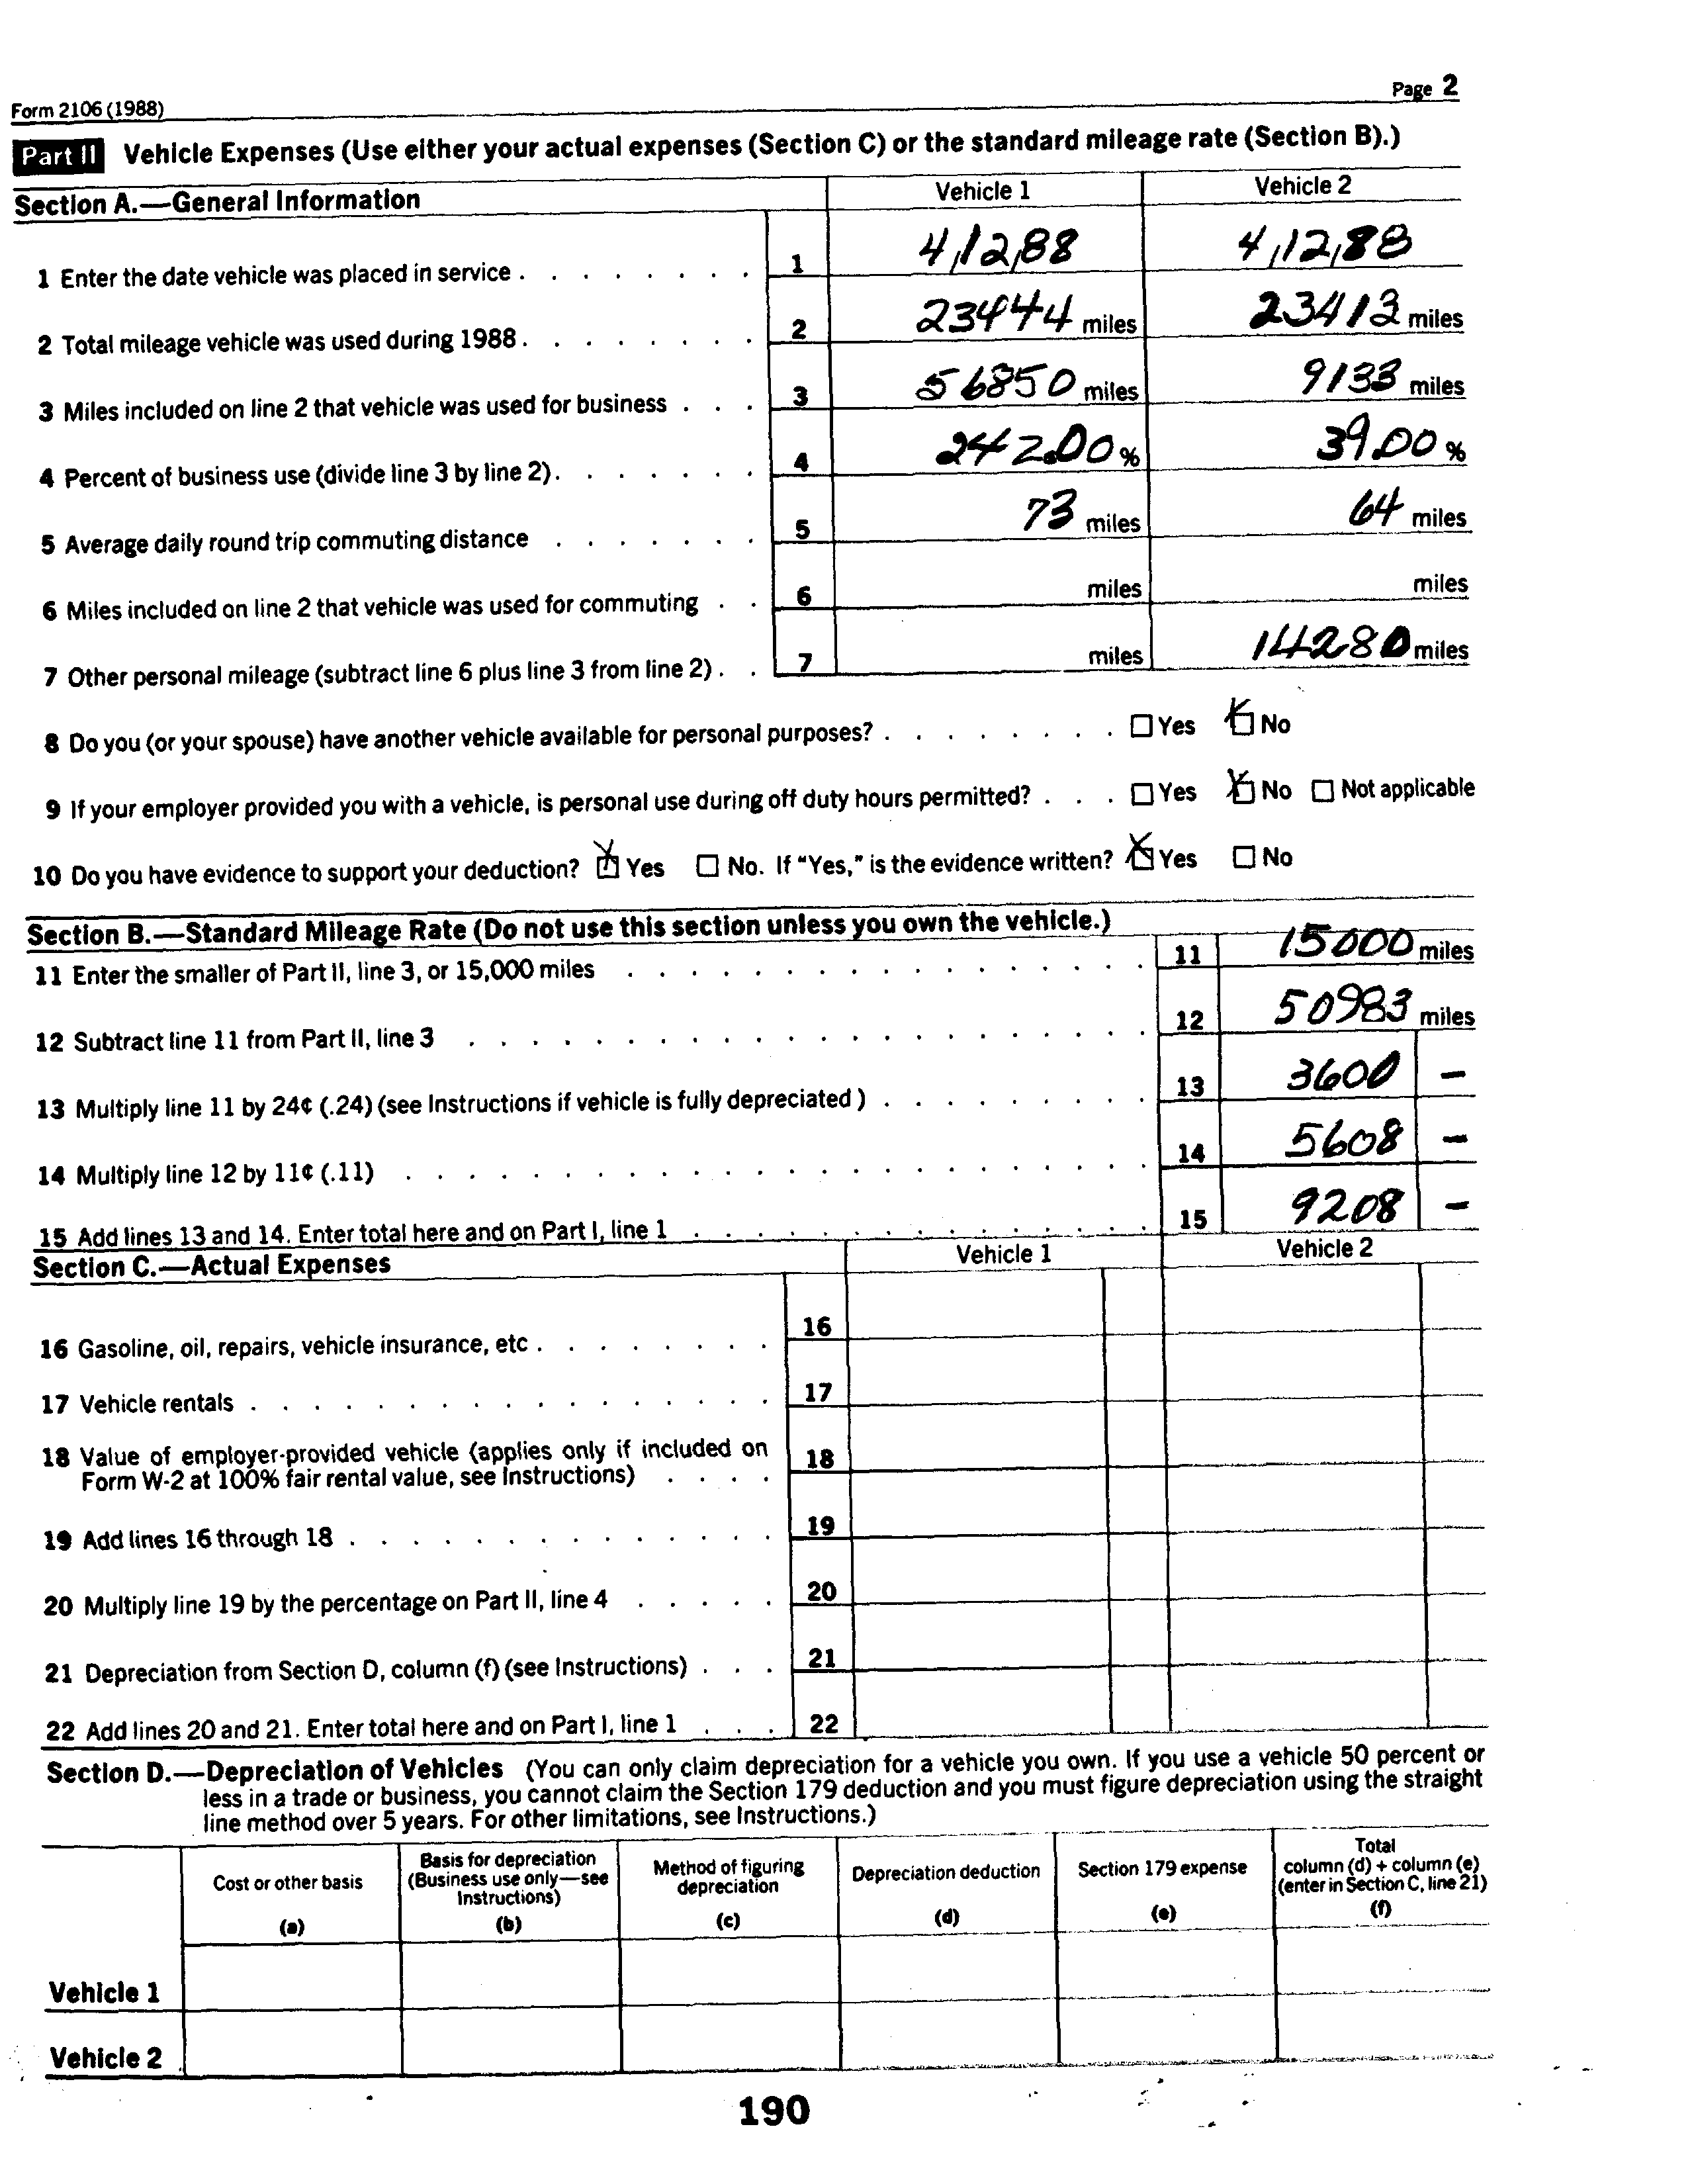 Form 2106 (1988) Page 2
Part II Vehicle Expenses (Use either your actual expenses (Section C) or the standard mileage rate (Section B).)
Section A.—General Information Vehicle 1 Vehicle 2
1 Enter the date vehicle was placed in service . . . . . . . . 1 4,12,88 4,12,88
2 Total mileage vehicle was used during 1988 . . . . . . . . 2 23444 miles 23413 miles
3 Miles included on line 2 that vehicle was used for business . . . 3 56850 miles 9133 miles
4 Percent of business use (divide line 3 by line 2) . . . . . . . 4 242.00 % 39.00 %
5 Average daily round trip commuting distance . . . . . . . 5 73 miles 64 miles
6 Miles included on line 2 that vehicle was used for commuting . . 6 miles miles
7 Other personal mileage (subtract line 6 plus line 3 from line 2) . . 7 miles 14280 miles
8 Do you (or your spouse) have another vehicle available for personal purposes? . . . . . . . . Yes No
9 If your employer provided you with a vehicle, is personal use during off duty hours permitted? . . . Yes No Not applicable
10 Do you have evidence to support your deduction? Yes No. If "Yes," is the evidence written? Yes No
Section B.—Standard Mileage Rate (Do not use this section unless you own the vehicle.)
11 Enter the smaller of Part II, line 3, or 15,000 miles . . . . . . . . . . . . . . . . . 11 15000 miles
12 Subtract line 11 from Part II, line 3 . . . . . . . . . . . . . . . . . . . . . . 12 50983 miles
13 Multiply line 11 by 24¢ (.24) (see Instructions if vehicle is fully depreciated) . . . . . . . . . 13 3600 —
14 Multiply line 12 by 11¢ (.11) . . . . . . . . . . . . . . . . . . . . . . . . 14 5608 —
15 Add lines 13 and 14. Enter total here and on Part I, line 1 . . . . . . . . . . . . . . . 15 9208 —
Section C.—Actual Expenses Vehicle 1 Vehicle 2
16 Gasoline, oil, repairs, vehicle insurance, etc . . . . . . . . 16
17 Vehicle rentals . . . . . . . . . . . . . . . . . 17
18 Value of employer-provided vehicle (applies only if included on
Form W-2 at 100% fair rental value, see Instructions) . . . . 18
19 Add lines 16 through 18 . . . . . . . . . . . . . . 19
20 Multiply line 19 by the percentage on Part II, line 4 . . . . . 20
21 Depreciation from Section D, column (f) (see Instructions) . . . 21
22 Add lines 20 and 21. Enter total here and on Part I, line 1 . . . 22
Section D.—Depreciation of Vehicles (You can only claim depreciation for a vehicle you own. If you use a vehicle 50 percent or
less in a trade or business, you cannot claim the Section 179 deduction and you must figure depreciation using the straight
line method over 5 years. For other limitations, see Instructions.)
Cost or other basis
(a)
Basis for depreciation
(Business use only—see
Instructions)
(b)
Method of figuring
depreciation
(c)
Depreciation deduction
(d)
Section 179 expense
(e)
Total
column (d) + column (e)
(enter in Section C, line 21)
(f)
Vehicle 1
Vehicle 2
190